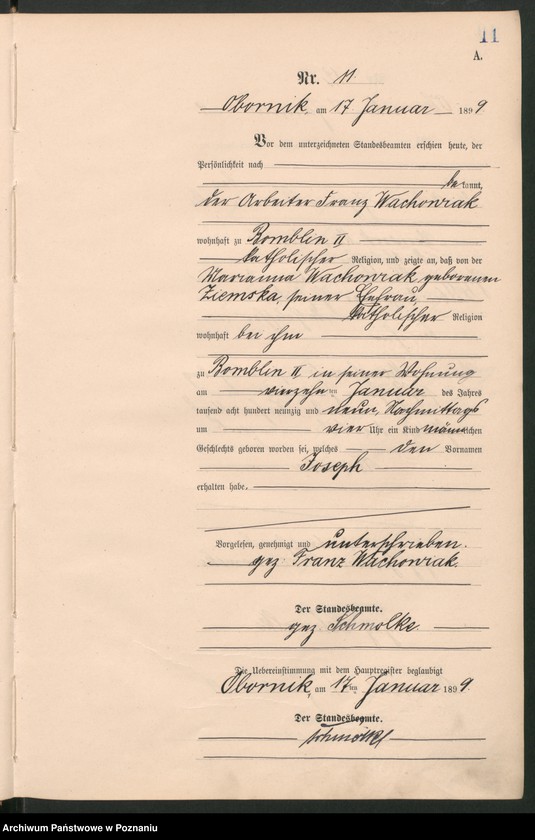 11
A.
Nr. 11
Obornik, am 17 Januar 1899
Vor dem unterzeichneten Standesbeamten erschien heute, der
Persönlichkeit nach
bekannt,
der Arbeiter Franz Wachowiak
wohnhaft zu Bomblin II
katholischer Religion, und zeigte an, daß von der
Marianna Wachowiak geborenen
Ziemska, seiner Ehefrau,
katholischer Religion
wohnhaft bei ihm
zu Bomblin II in seiner Wohnung
am vierzehnten Januar des Jahres
tausend acht hundert neunzig und neun, Nachmittags
um vier Uhr ein Kind männlichen
Geschlechts geboren worden sei, welches den Vornamen
Joseph
erhalten habe.
Vorgelesen, genehmigt und unterschrieben.
gez Franz Wachowiak
Der Standesbeamte.
gez Schmolke
Die Uebereinstimmung mit dem Hauptregister beglaubigt
Obornik, am 17ten Januar 1899
Der Standesbeamte.
Schmolke
Archiwum Państwowe w Poznaniu